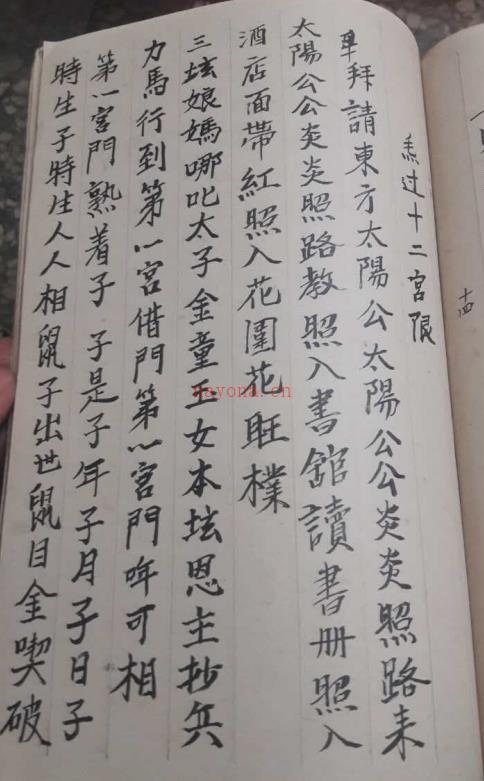 焦过十二宮限
拜請東方太陽公太陽公公炎炎照路来
太陽公公炎炎照路教照入書舘讀書册照入
酒店面帶紅照入花園花旺樸
三坛娘媽哪叱太子金童玉女本坛恩主抄兵
力馬行到第一宮借門第一宮門年可相
第一宮門熟着子 子是子年子月子日子
時生子時生人人相鼠子出世鼠目金喫破
十四
nayona.cn